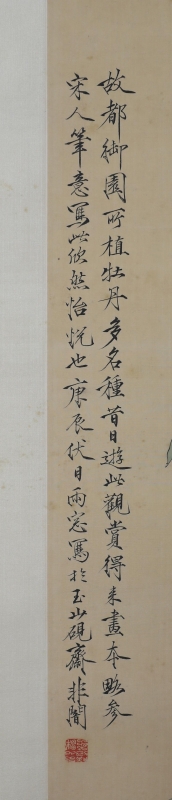 故都御園所植牡丹多名種昔日遊此觀賞得來畫本略參
宋人筆意寫此欣然怡悅也庚辰伏日雨窓寫於玉山硯齋非闇